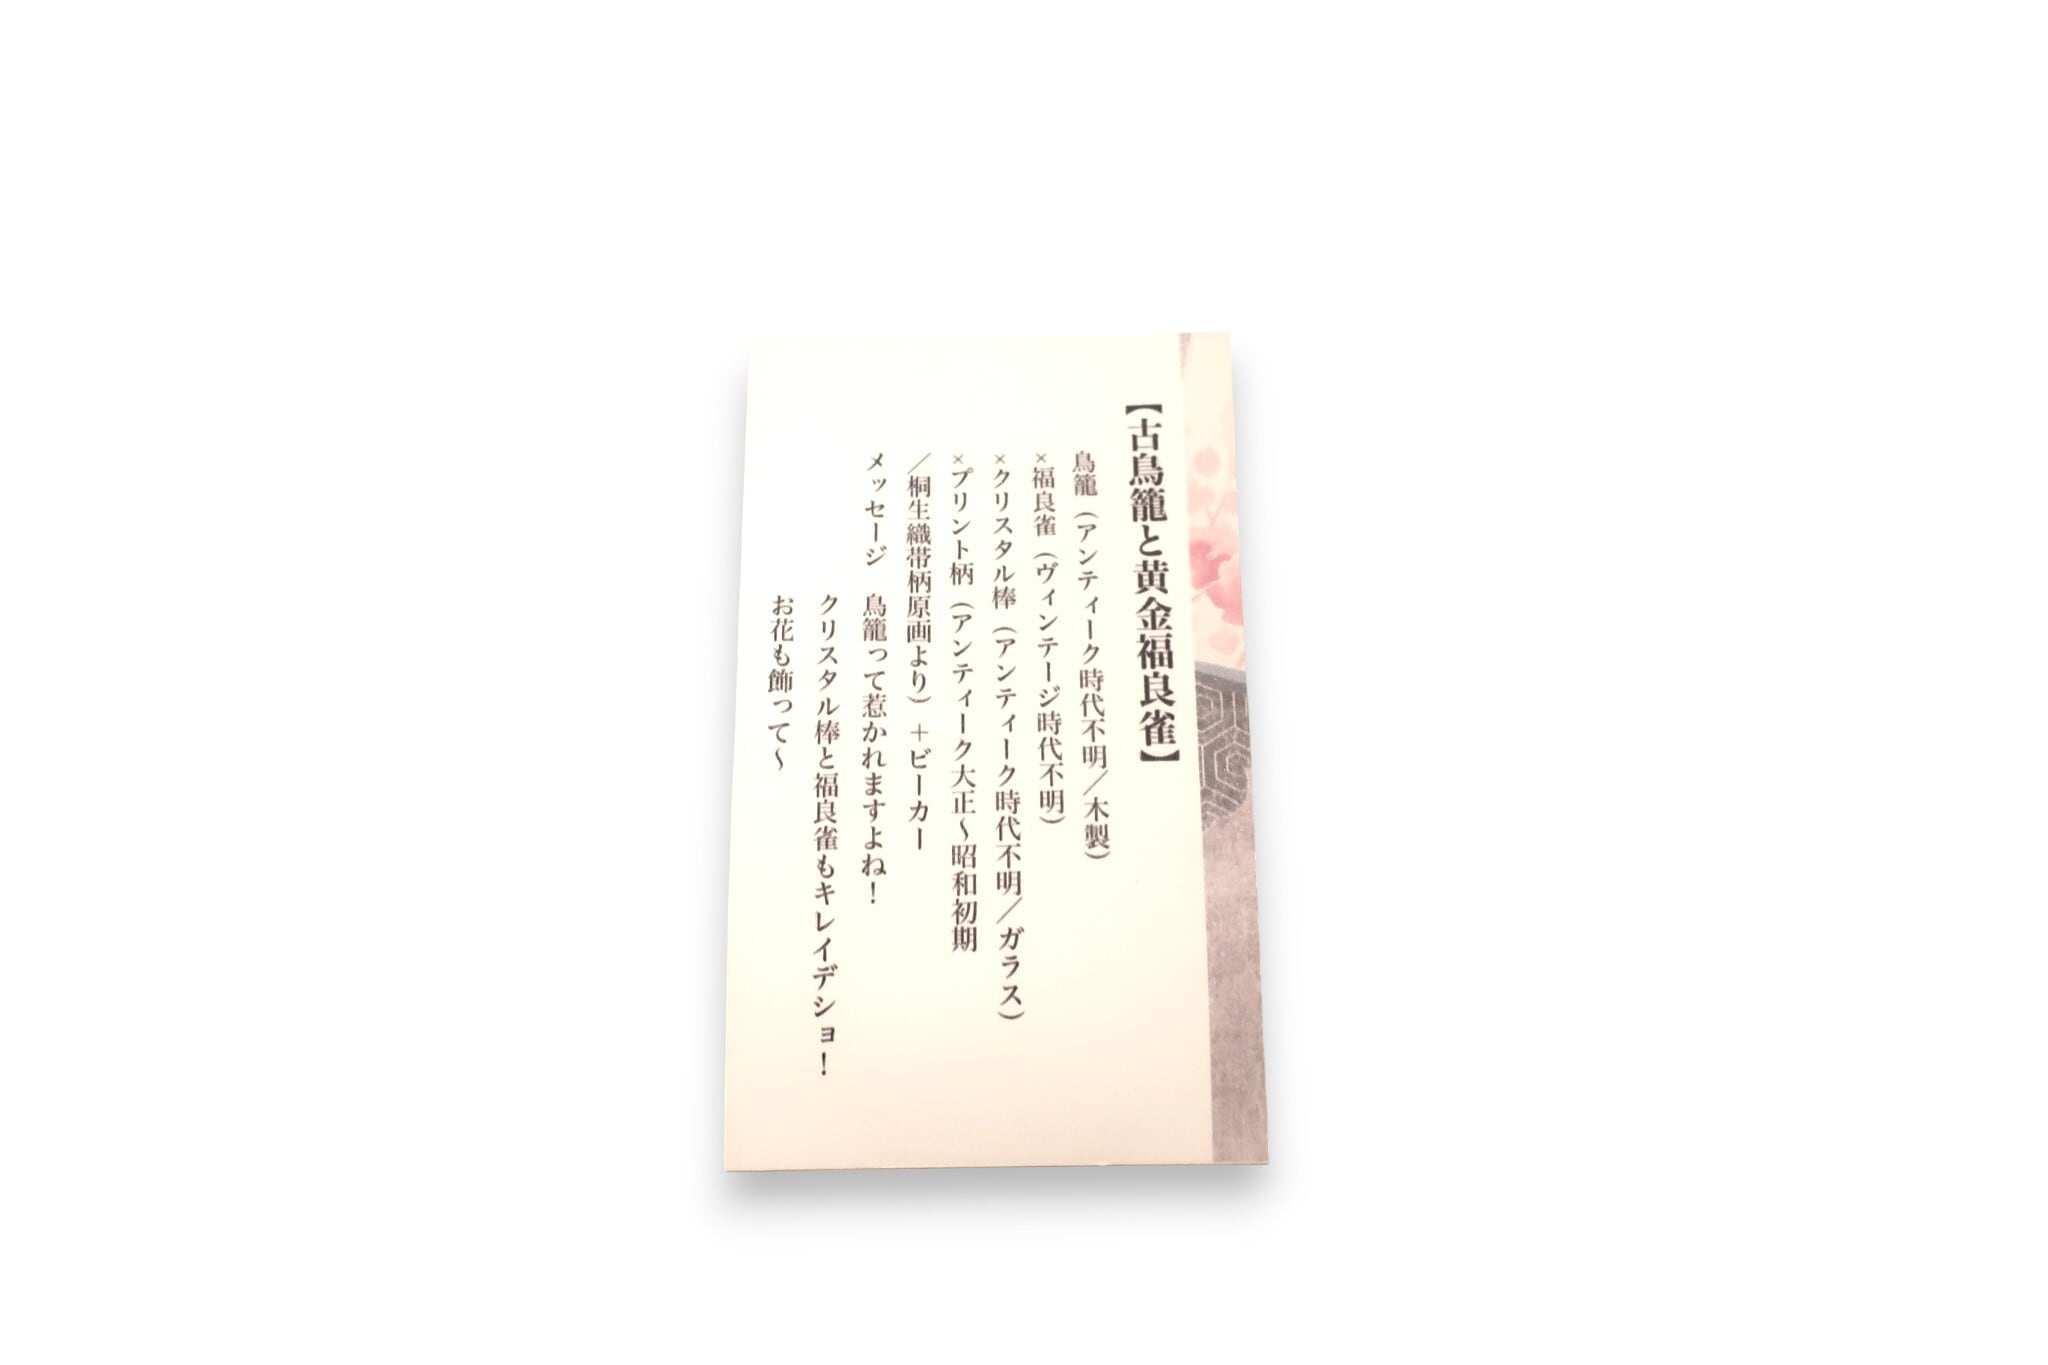 【古鳥籠と黄金福良雀】
鳥籠（アンティーク時代不明／木製）
×福良雀（ヴィンテージ時代不明）
×クリスタル棒（アンティーク時代不明／ガラス）
×プリント柄（アンティーク大正～昭和初期
／桐生織帯柄原画より）＋ビーカー
メッセージ　鳥籠って惹かれますよね！
クリスタル棒と福良雀もキレイデショ！
お花も飾って～